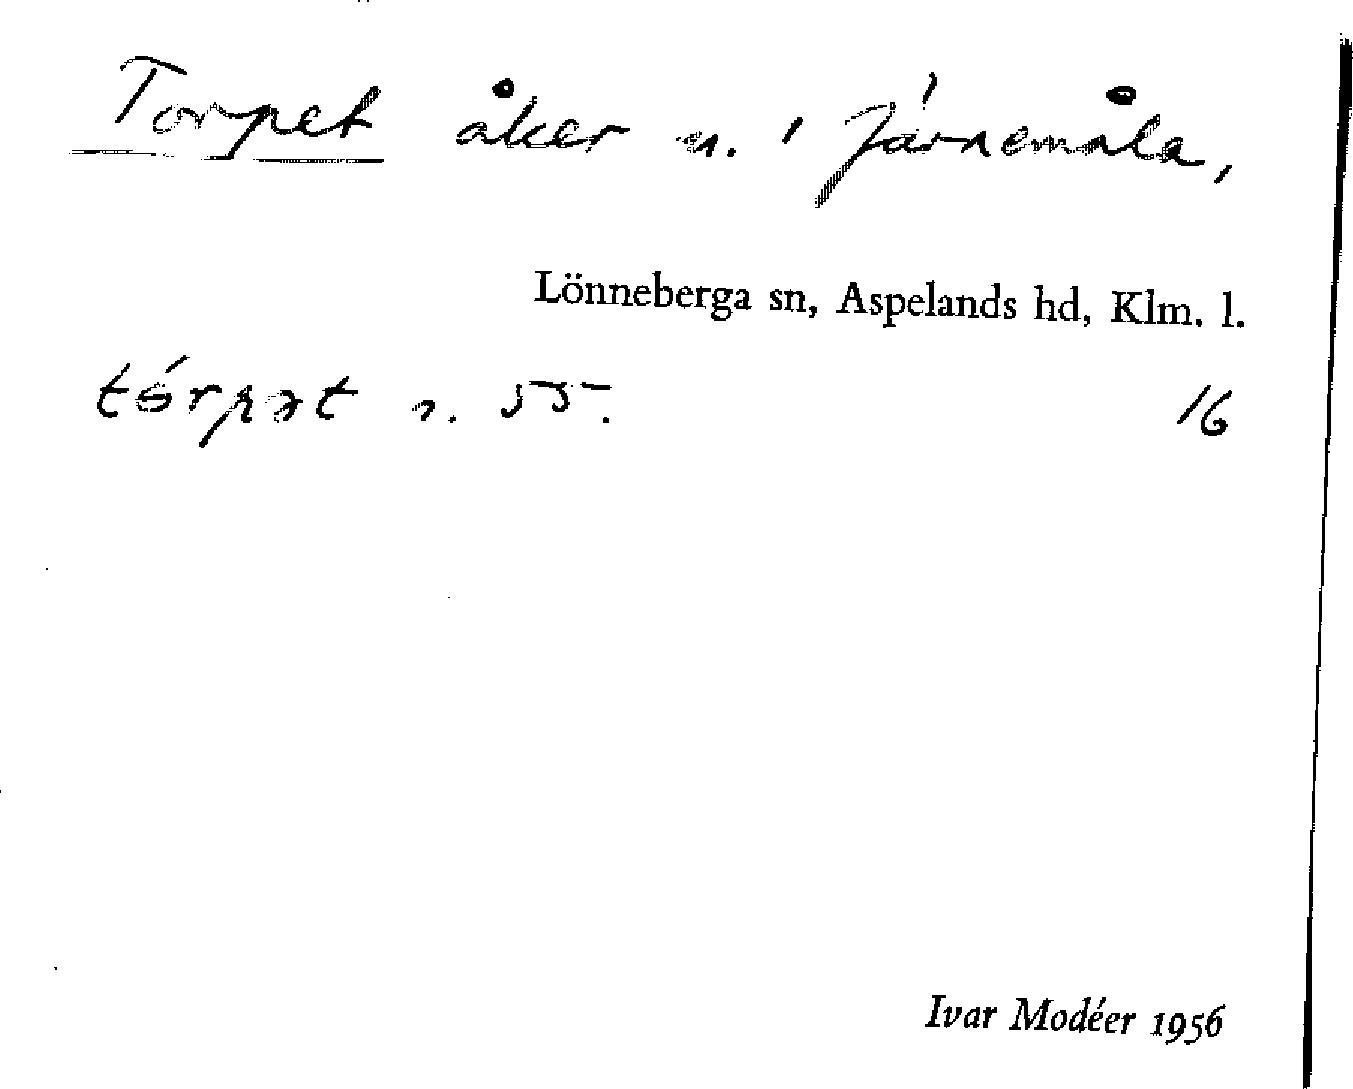 Torpet åker n. i Järnemåla,
Lönneberga sn, Aspelands hd, Klm. l.
tórpət n. 55.
16
Ivar Modéer 1956